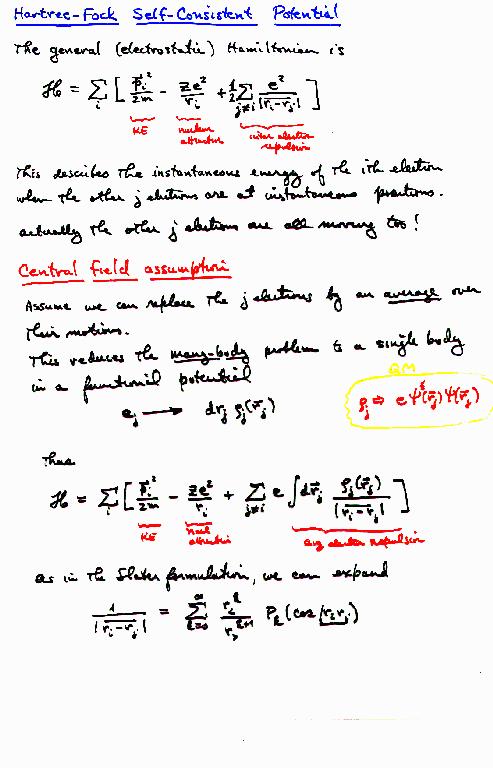 Hartree-Fock Self-Consistent Potential
The general (electrostatic) Hamiltonian is
ℋ = Σ_i [ p⃗_i²/2m − Ze²/r_i + ½ Σ_{j≠i} e²/|r_i−r_j| ]
KE nuclear attraction inter electron repulsion
This describes the instantaneous energy of the ith electron
when the other j electrons are at instantaneous positions.
actually the other j electrons are all moving too!
Central field assumption
Assume we can replace the j electrons by an average over
their motions.
This reduces the many-body problem to a single body
in a functional potential
QM
e_j → dr_j ρ_j(r⃗_j) ρ_j ⇒ e ψ*(r⃗_j) ψ(r⃗_j)
Thus
ℋ = Σ_i [ p⃗_i²/2m − Ze²/r_i + Σ_{j≠i} e ∫ dr⃗_j ρ_j(r⃗_j)/|r_i−r_j| ]
KE nucl attraction avg electron repulsion
as in the Slater formulation, we can expand
1/|r_i−r_j| = Σ_{k=0}^∞ r_<^k/r_>^{k+1} P_k (cos r_i r_j)